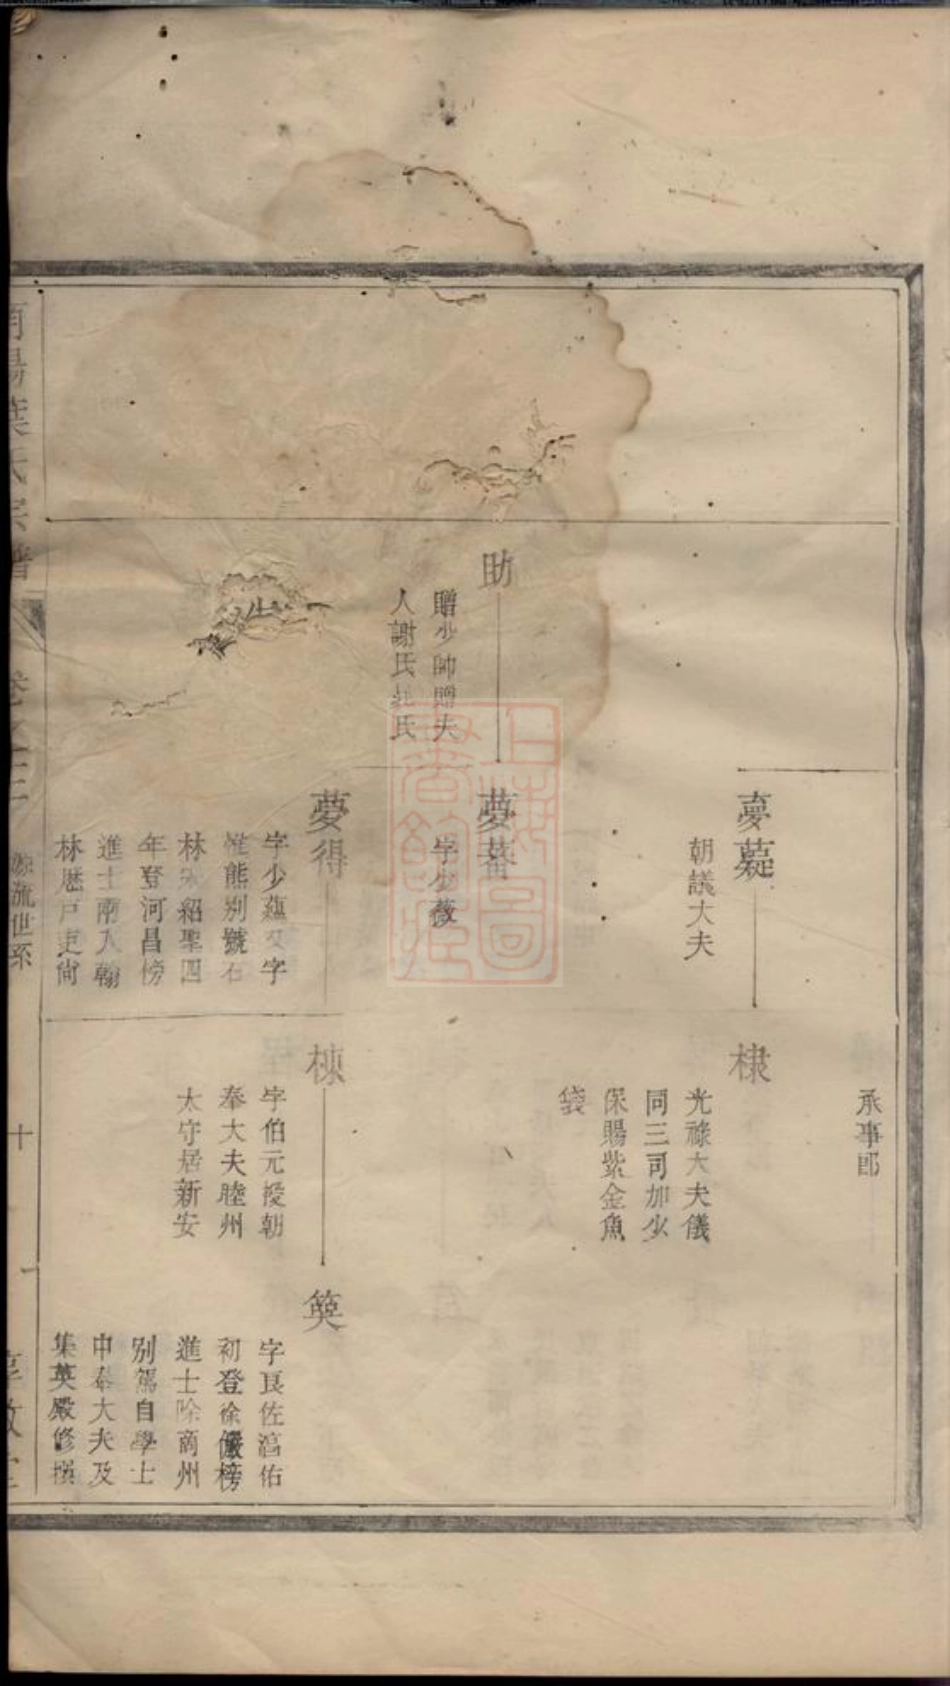 承事郎
夢薿
朝議大夫
棣
光祿大夫儀
同三司加少
保賜紫金魚
袋
助
贈少師贈夫
人謝氏晁氏
夢蕃
字少薇
夢得
字少蘊又字
惟熊别號石
林宋紹聖四
年登河昌榜
進士兩入翰
林歴戸吏尙
棟
字伯元授朝
奉大夫睦州
太守居新安
簨
字良佐淳佑
初登徐儼榜
進士除商州
别駕自學士
中奉大夫及
集英殿修撰
南陽葉氏宗譜
卷之三
源流世系
十一
享敘堂
上海圖書館藏